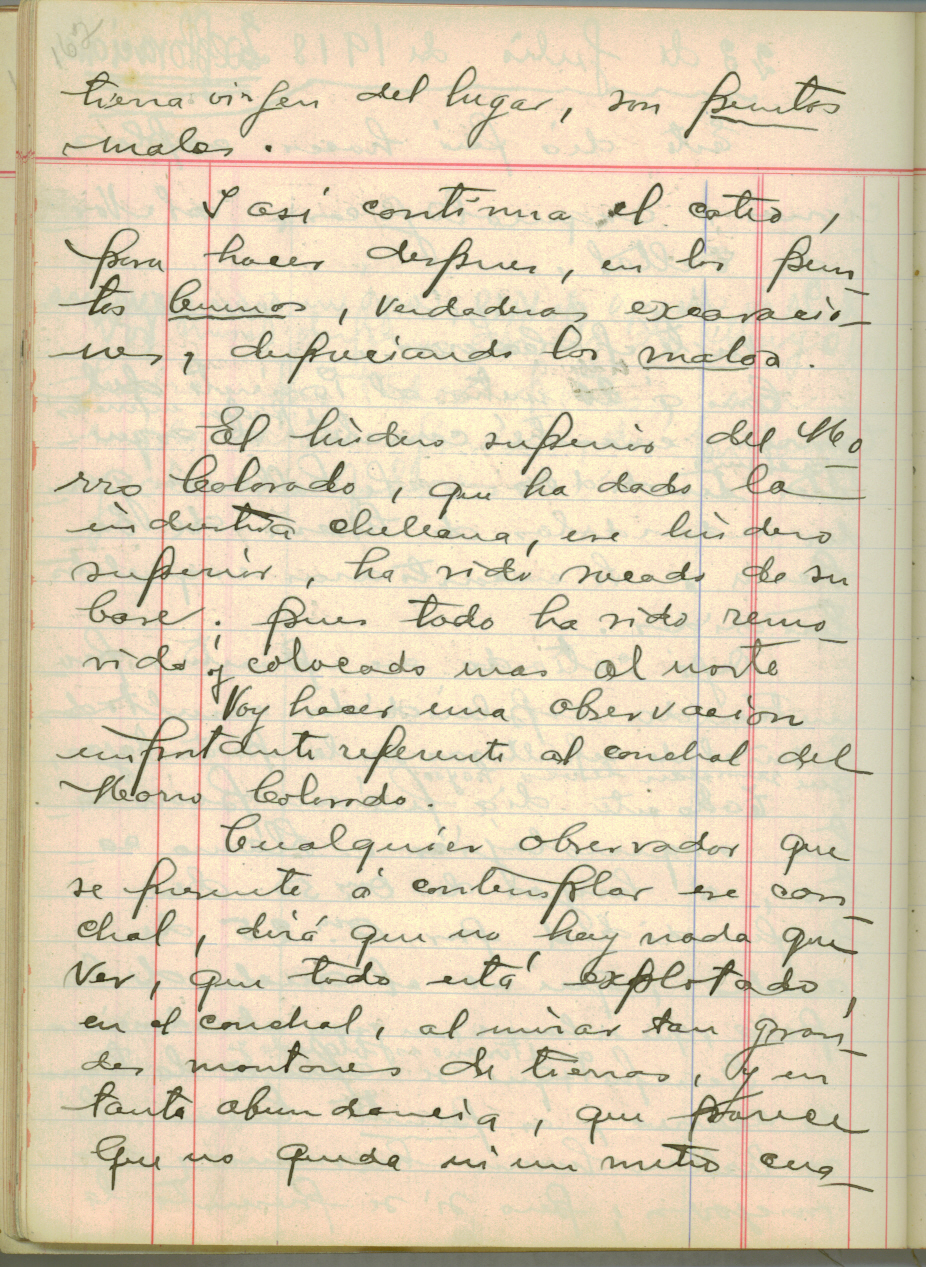 tierra virgen del lugar, son puntos
malos.
I así continua el cateo,
para hacer despues, en los pun-
tos buenos, verdaderas excavacio-
nes, despreciando los malos.
El lindero superior del Mo-
rro Colorado, que ha dado la
industria chelleana, ese lindero
superior, ha sido sacado de su
base; pues todo ha sido remo-
vido y colocado mas al norte
Voy hacer una observacion
importante referente al conchal del
Morro Colorado.
Cualquier observador que
se presente á contemplar ese con-
chal, dirá que no hay nada que
ver, que todo está explotado,
en el conchal, al mirar tan gran-
des montones de tierras, y en
tanta abundancia, que parece
que no queda ni un metro cua-